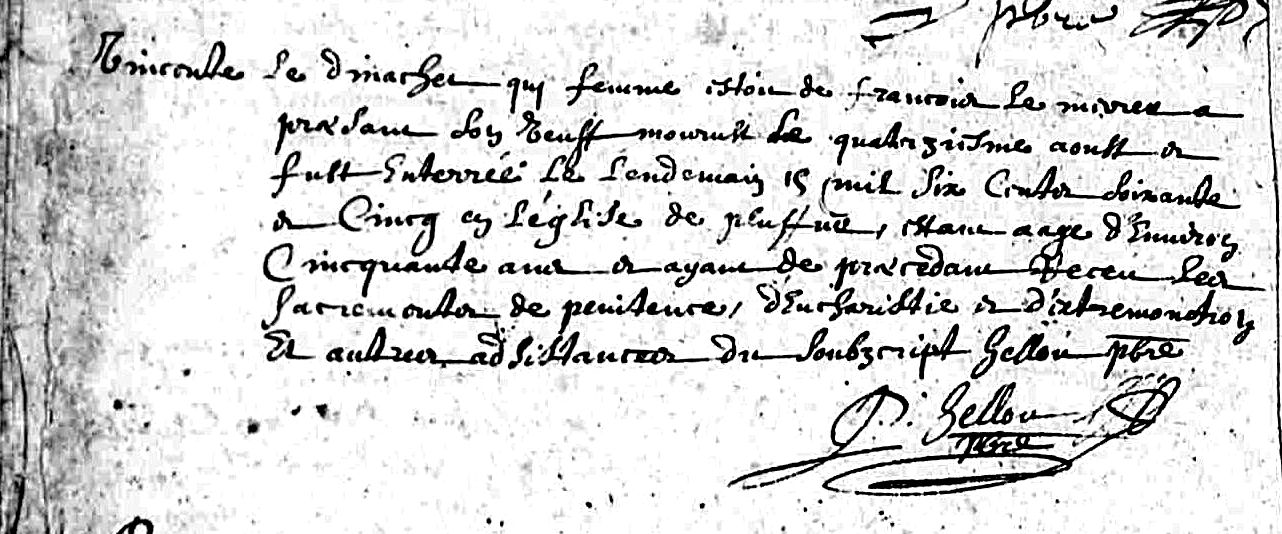 pbre
Vincente Le Dmacher qui femme estoit de francois Le mevrer a
præsant son Veuff mourust Le quatorziesme aoust et
fust Enterréé Le Lendemain 15 mil six Centes soixante
et Cincq en L'église de pluffur, estant aage d'Environ
Cincquante ans et ayant de præcedant Receu Les
sacrementes de penitence, d'Eucharistie et d'extremonction
Et autres adsistances du soubzcript Hellou pbre
P. Hellou
pbre